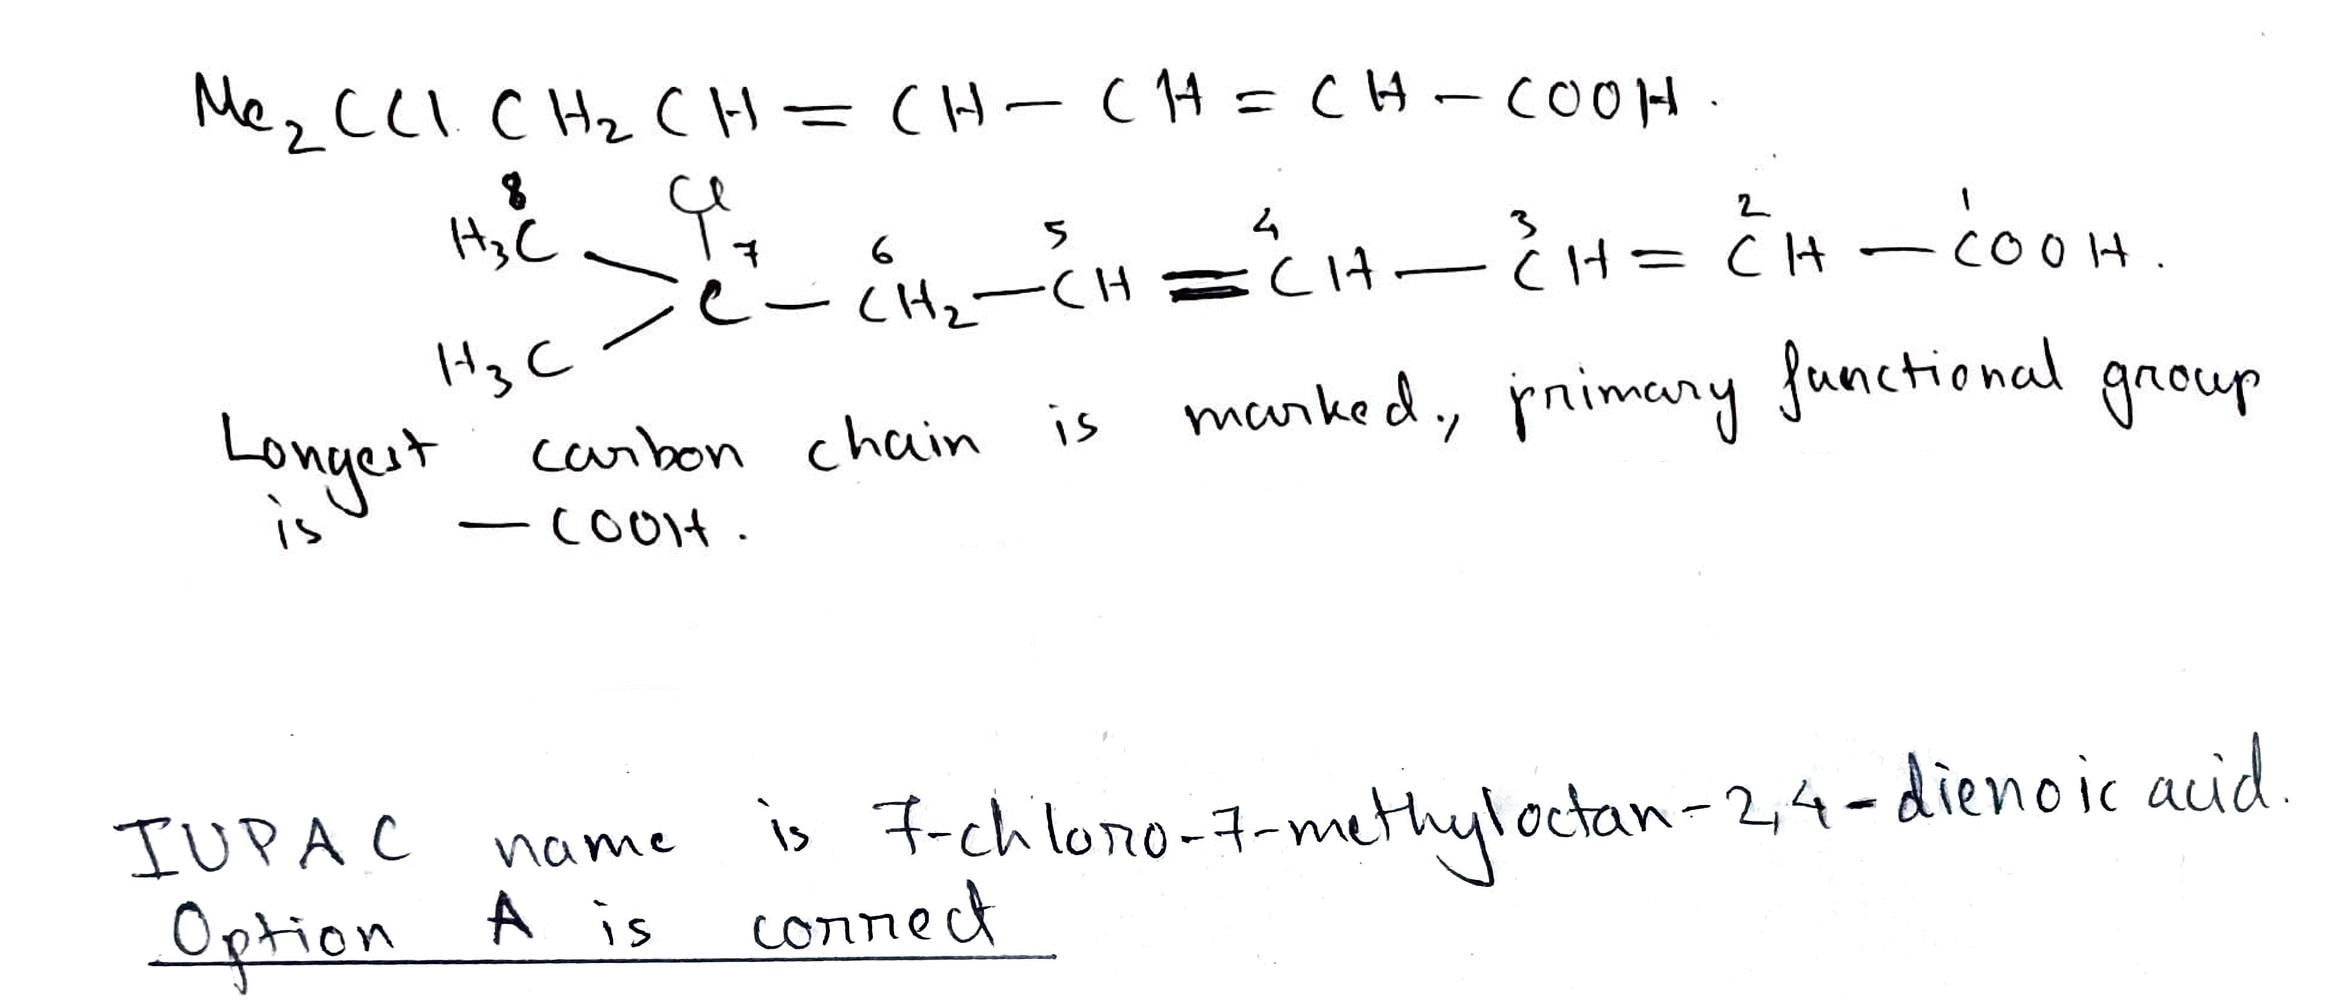 Me₂CCl.CH₂CH=CH-CH=CH-COOH.
8 Cl
H₃C 7 6 5 4 3 2 1
C-CH₂-CH=CH-CH=CH-COOH.
H₃C
Longest carbon chain is marked., primary functional group
is -COOH.
IUPAC name is 7-chloro-7-methyloctan-2,4-dienoic acid.
Option A is correct